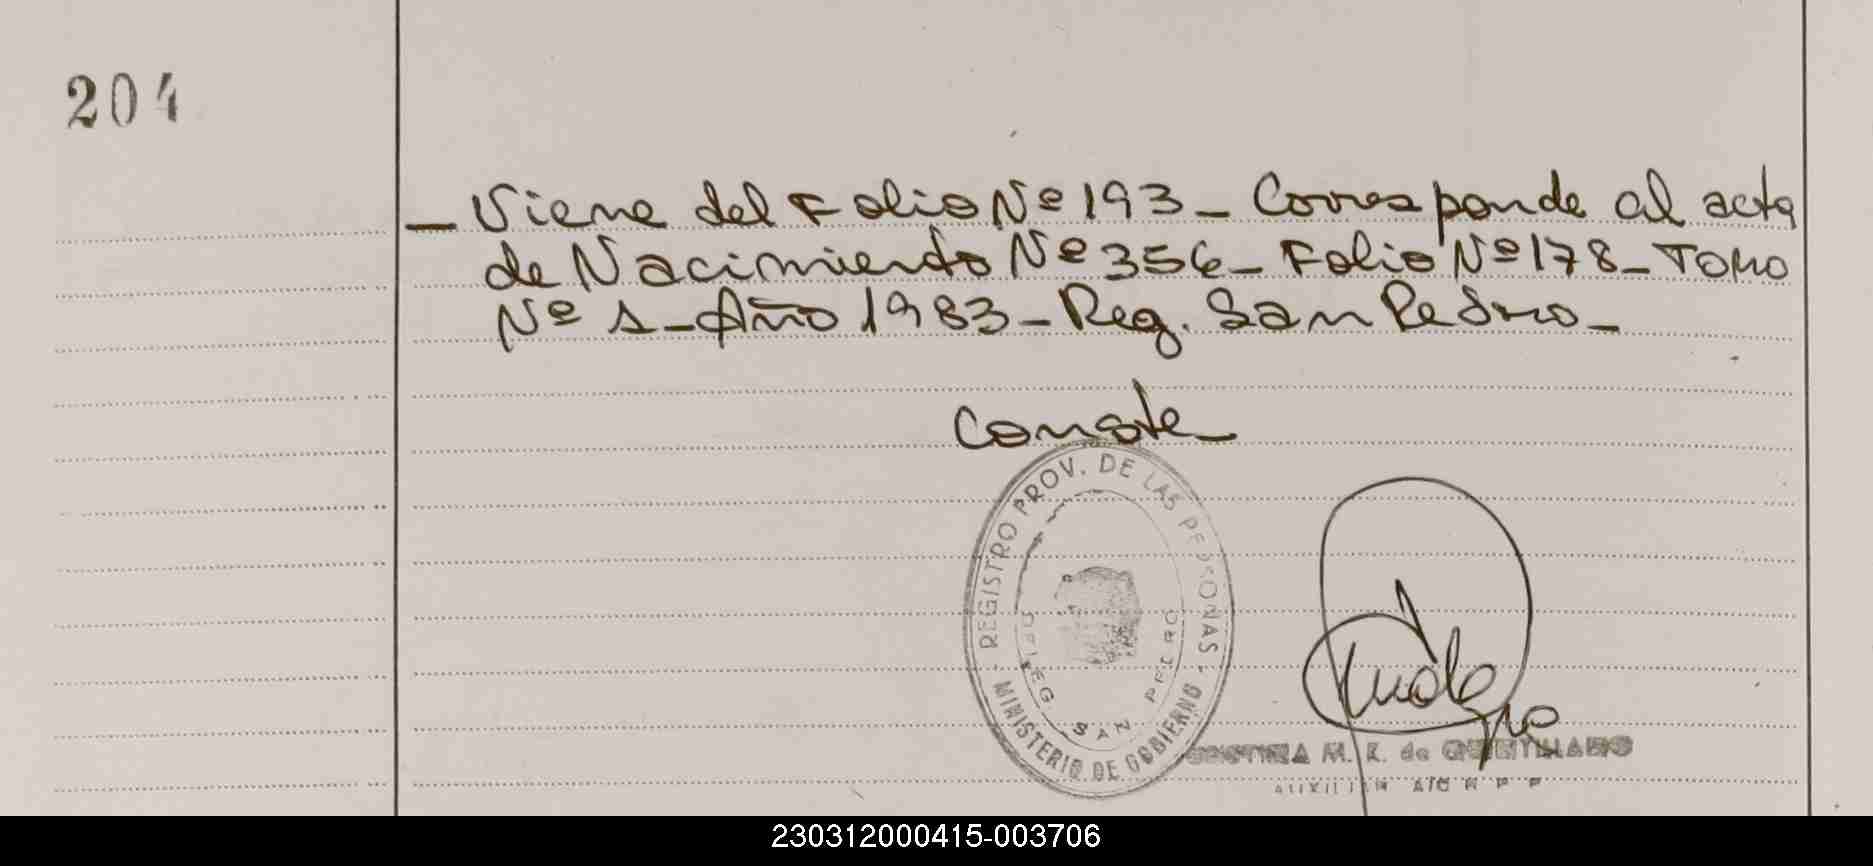 204
_ Viene del Folio Nº 193 _ Corresponde al acta
de Nacimiento Nº 356 _ Folio Nº 178 _ Tomo
Nº 1 _ Año 1983 _ Reg. San Pedro _
Conste _
REGISTRO PROV. DE LAS PERSONAS
MINISTERIO DE GOBIERNO
SAN PEDRO
M. R. de QUINTILLANO
230312000415-003706